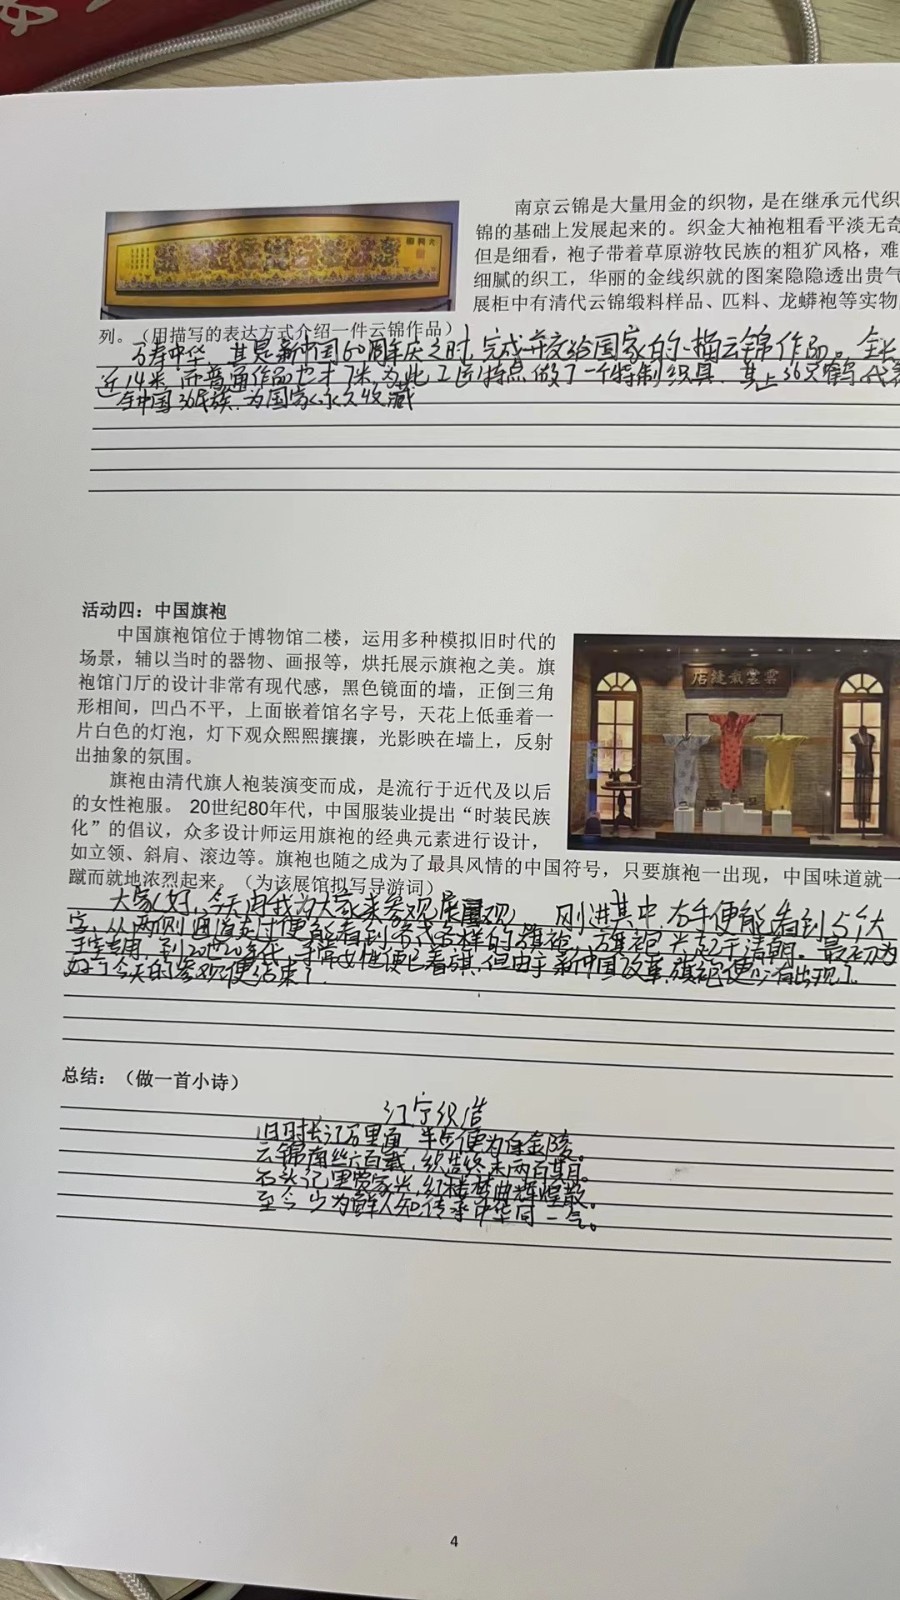 南京云锦是大量用金的织物，是在继承元代织
锦的基础上发展起来的。织金大袖袍粗看平淡无奇
但是细看，袍子带着草原游牧民族的粗犷风格，难
细腻的织工，华丽的金线织就的图案隐隐透出贵气
展柜中有清代云锦缎料样品、匹料、龙蟒袍等实物
列。（用描写的表达方式介绍一件云锦作品）
万寿中华，其是新中国60周年庆之时，完成并交给国家的一描云锦作品。全长
近14米，而普通作品也才7米，为此工匠特点做了一个特制织具，其上36只鹤，代表
与中国36民族，为国家永久收藏
活动四：中国旗袍
中国旗袍馆位于博物馆二楼，运用多种模拟旧时代的
场景，辅以当时的器物、画报等，烘托展示旗袍之美。旗
袍馆门厅的设计非常有现代感，黑色镜面的墙，正倒三角
形相间，凹凸不平，上面嵌着馆名字号，天花上低垂着一
片白色的灯泡，灯下观众熙熙攘攘，光影映在墙上，反射
出抽象的氛围。
旗袍由清代旗人袍装演变而成，是流行于近代及以后
的女性袍服。 20世纪80年代，中国服装业提出“时装民族
化”的倡议，众多设计师运用旗袍的经典元素进行设计，
如立领、斜肩、滚边等。旗袍也随之成为了最具风情的中国符号，只要旗袍一出现，中国味道就一
蹴而就地浓烈起来。（为该展馆拟写导游词）
大家好，今天由我为大家来参观展 观 刚进其中，右手便能看到5个大
字，从两侧通道走过便能看到 式 样的旗袍，旗袍 起于清朝。最初为
专用，到20世 年代，寻常女性便已着旗，但由于新中国改革，旗袍便少有出现了
好了今天的参观便结束了.
总结：（做一首小诗）
江宁织造
旧时长江万里面，半步便为白金陵。
云锦南丝六百载，织造终未两百期。
石头记里贾家兴，红楼梦曲辉煌散。
至今少为鲜人知，传承中华同一气。
4